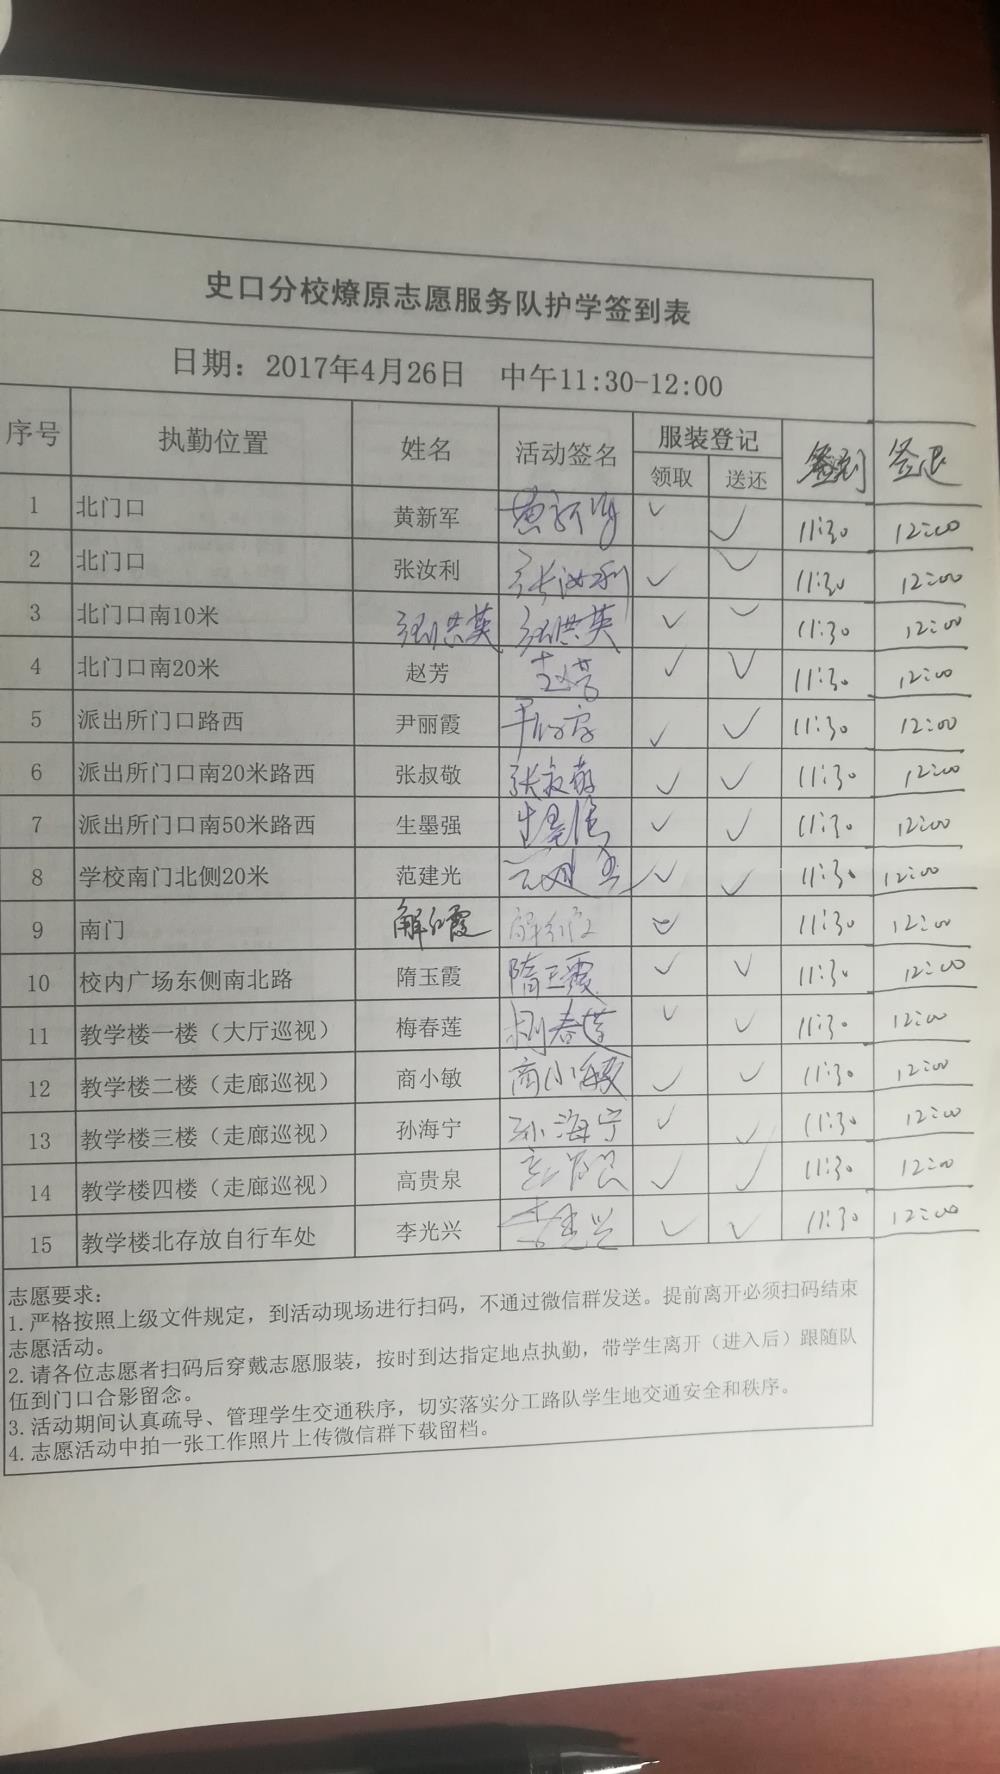 史口分校燎原志愿服务队护学签到表
日期：2017年4月26日 中午11:30-12:00
序号 执勤位置 姓名 活动签名 服装登记 签到 签退
领取 送还
1 北门口 黄新军 黄新军 ✓ ✓ 11:30 12:00
2 北门口 张汝利 张汝利 ✓ ✓ 11:30 12:00
3 北门口南10米 张洪英 张洪英 ✓ ✓ 11:30 12:00
4 北门口南20米 赵芳 赵芳 ✓ ✓ 11:30 12:00
5 派出所门口路西 尹丽霞 ✓ ✓ 11:30 12:00
6 派出所门口南20米路西 张叔敬 张叔敬 ✓ ✓ 11:30 12:00
7 派出所门口南50米路西 生墨强 生墨强 ✓ ✓ 11:30 12:00
8 学校南门北侧20米 范建光 ✓ ✓ 11:30 12:00
9 南门 解红霞 解红霞 ✓ 11:30 12:00
10 校内广场东侧南北路 隋玉霞 隋玉霞 ✓ ✓ 11:30 12:00
11 教学楼一楼（大厅巡视） 梅春莲 梅春莲 ✓ ✓ 11:30 12:00
12 教学楼二楼（走廊巡视） 商小敏 商小敏 ✓ ✓ 11:30 12:00
13 教学楼三楼（走廊巡视） 孙海宁 孙海宁 ✓ ✓ 11:30 12:00
14 教学楼四楼（走廊巡视） 高贵泉 ✓ ✓ 11:30 12:00
15 教学楼北存放自行车处 李光兴 李光兴 ✓ ✓ 11:30 12:00
志愿要求：
1.严格按照上级文件规定，到活动现场进行扫码，不通过微信群发送。提前离开必须扫码结束
志愿活动。
2.请各位志愿者扫码后穿戴志愿服装，按时到达指定地点执勤，带学生离开（进入后）跟随队
伍到门口合影留念。
3.活动期间认真疏导、管理学生交通秩序，切实落实分工路队学生地交通安全和秩序。
4.志愿活动中拍一张工作照片上传微信群下载留档。